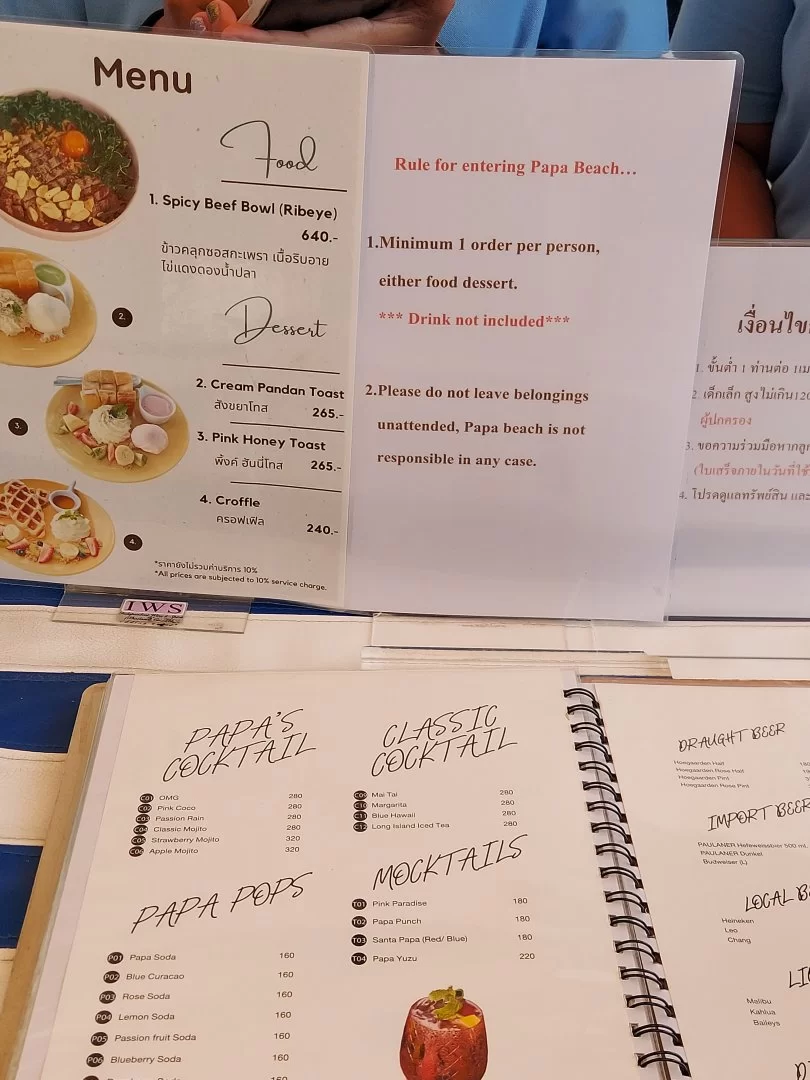 Menu
Food
1. Spicy Beef Bowl (Ribeye)
640.-
ข้าวคลุกซอสกะเพรา เนื้อริบอาย
ไข่แดงดองน้ำปลา
Dessert
2.
2. Cream Pandan Toast
สังขยาโทส 265.-
3.
3. Pink Honey Toast
พิ้งค์ ฮันนี่โทส 265.-
4. Croffle
ครอฟเฟิล 240.-
4.
*ราคายังไม่รวมค่าบริการ 10%
*All prices are subjected to 10% service charge.
IWS
Rule for entering Papa Beach...
1.Minimum 1 order per person,
either food dessert.
*** Drink not included***
2.Please do not leave belongings
unattended, Papa beach is not
responsible in any case.
เงื่อนไข
1. ขั้นต่ำ 1 ท่านต่อ 1
2. เด็กเล็ก สูงไม่เกิน120
ผู้ปกครอง
3. ขอความร่วมมือหากลูก
(ใบเสร็จภายในวันที่ใช้
4. โปรดดูแลทรัพย์สิน และ
PAPA'S
COCKTAIL
C01 OMG 280
C02 Pink Coco 280
C03 Passion Rain 280
C04 Classic Mojito 280
C05 Strawberry Mojito 320
C06 Apple Mojito 320
PAPA POPS
P01 Papa Soda 160
P02 Blue Curacao 160
P03 Rose Soda 160
P04 Lemon Soda 160
P05 Passion fruit Soda 160
P06 Blueberry Soda 160
CLASSIC
COCKTAIL
Mai Tai 280
Margarita 280
Blue Hawaii 280
Long Island Iced Tea 280
MOCKTAILS
T01 Pink Paradise 180
T02 Papa Punch 180
T03 Santa Papa (Red/ Blue) 180
T04 Papa Yuzu 220
DRAUGHT BEER
Hoegaarden Half 180
Hoegaarden Rose Half
Hoegaarden Pint
Hoegaarden Rose Pint
IMPORT BEER
PAULANER Hefeweissbier 500 ml.
PAULANER Dunkel
Budweiser (L)
LOCAL B
Heineken
Leo
Chang
Malibu
Kahlua
Baileys